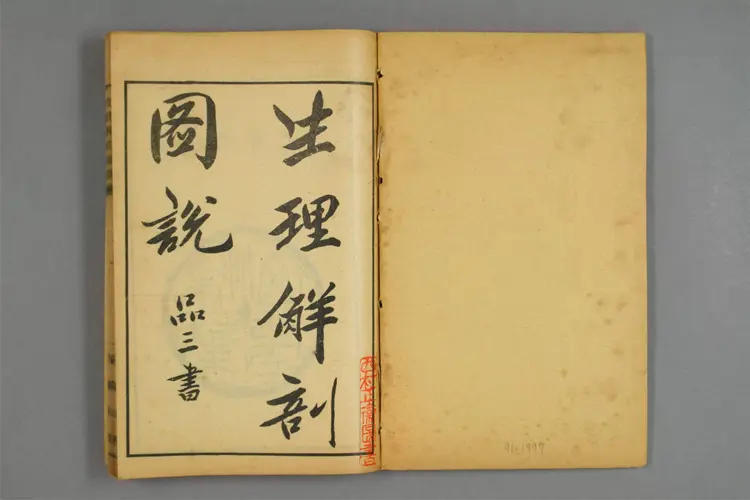 生理解剖
圖說
品三書
91-1997